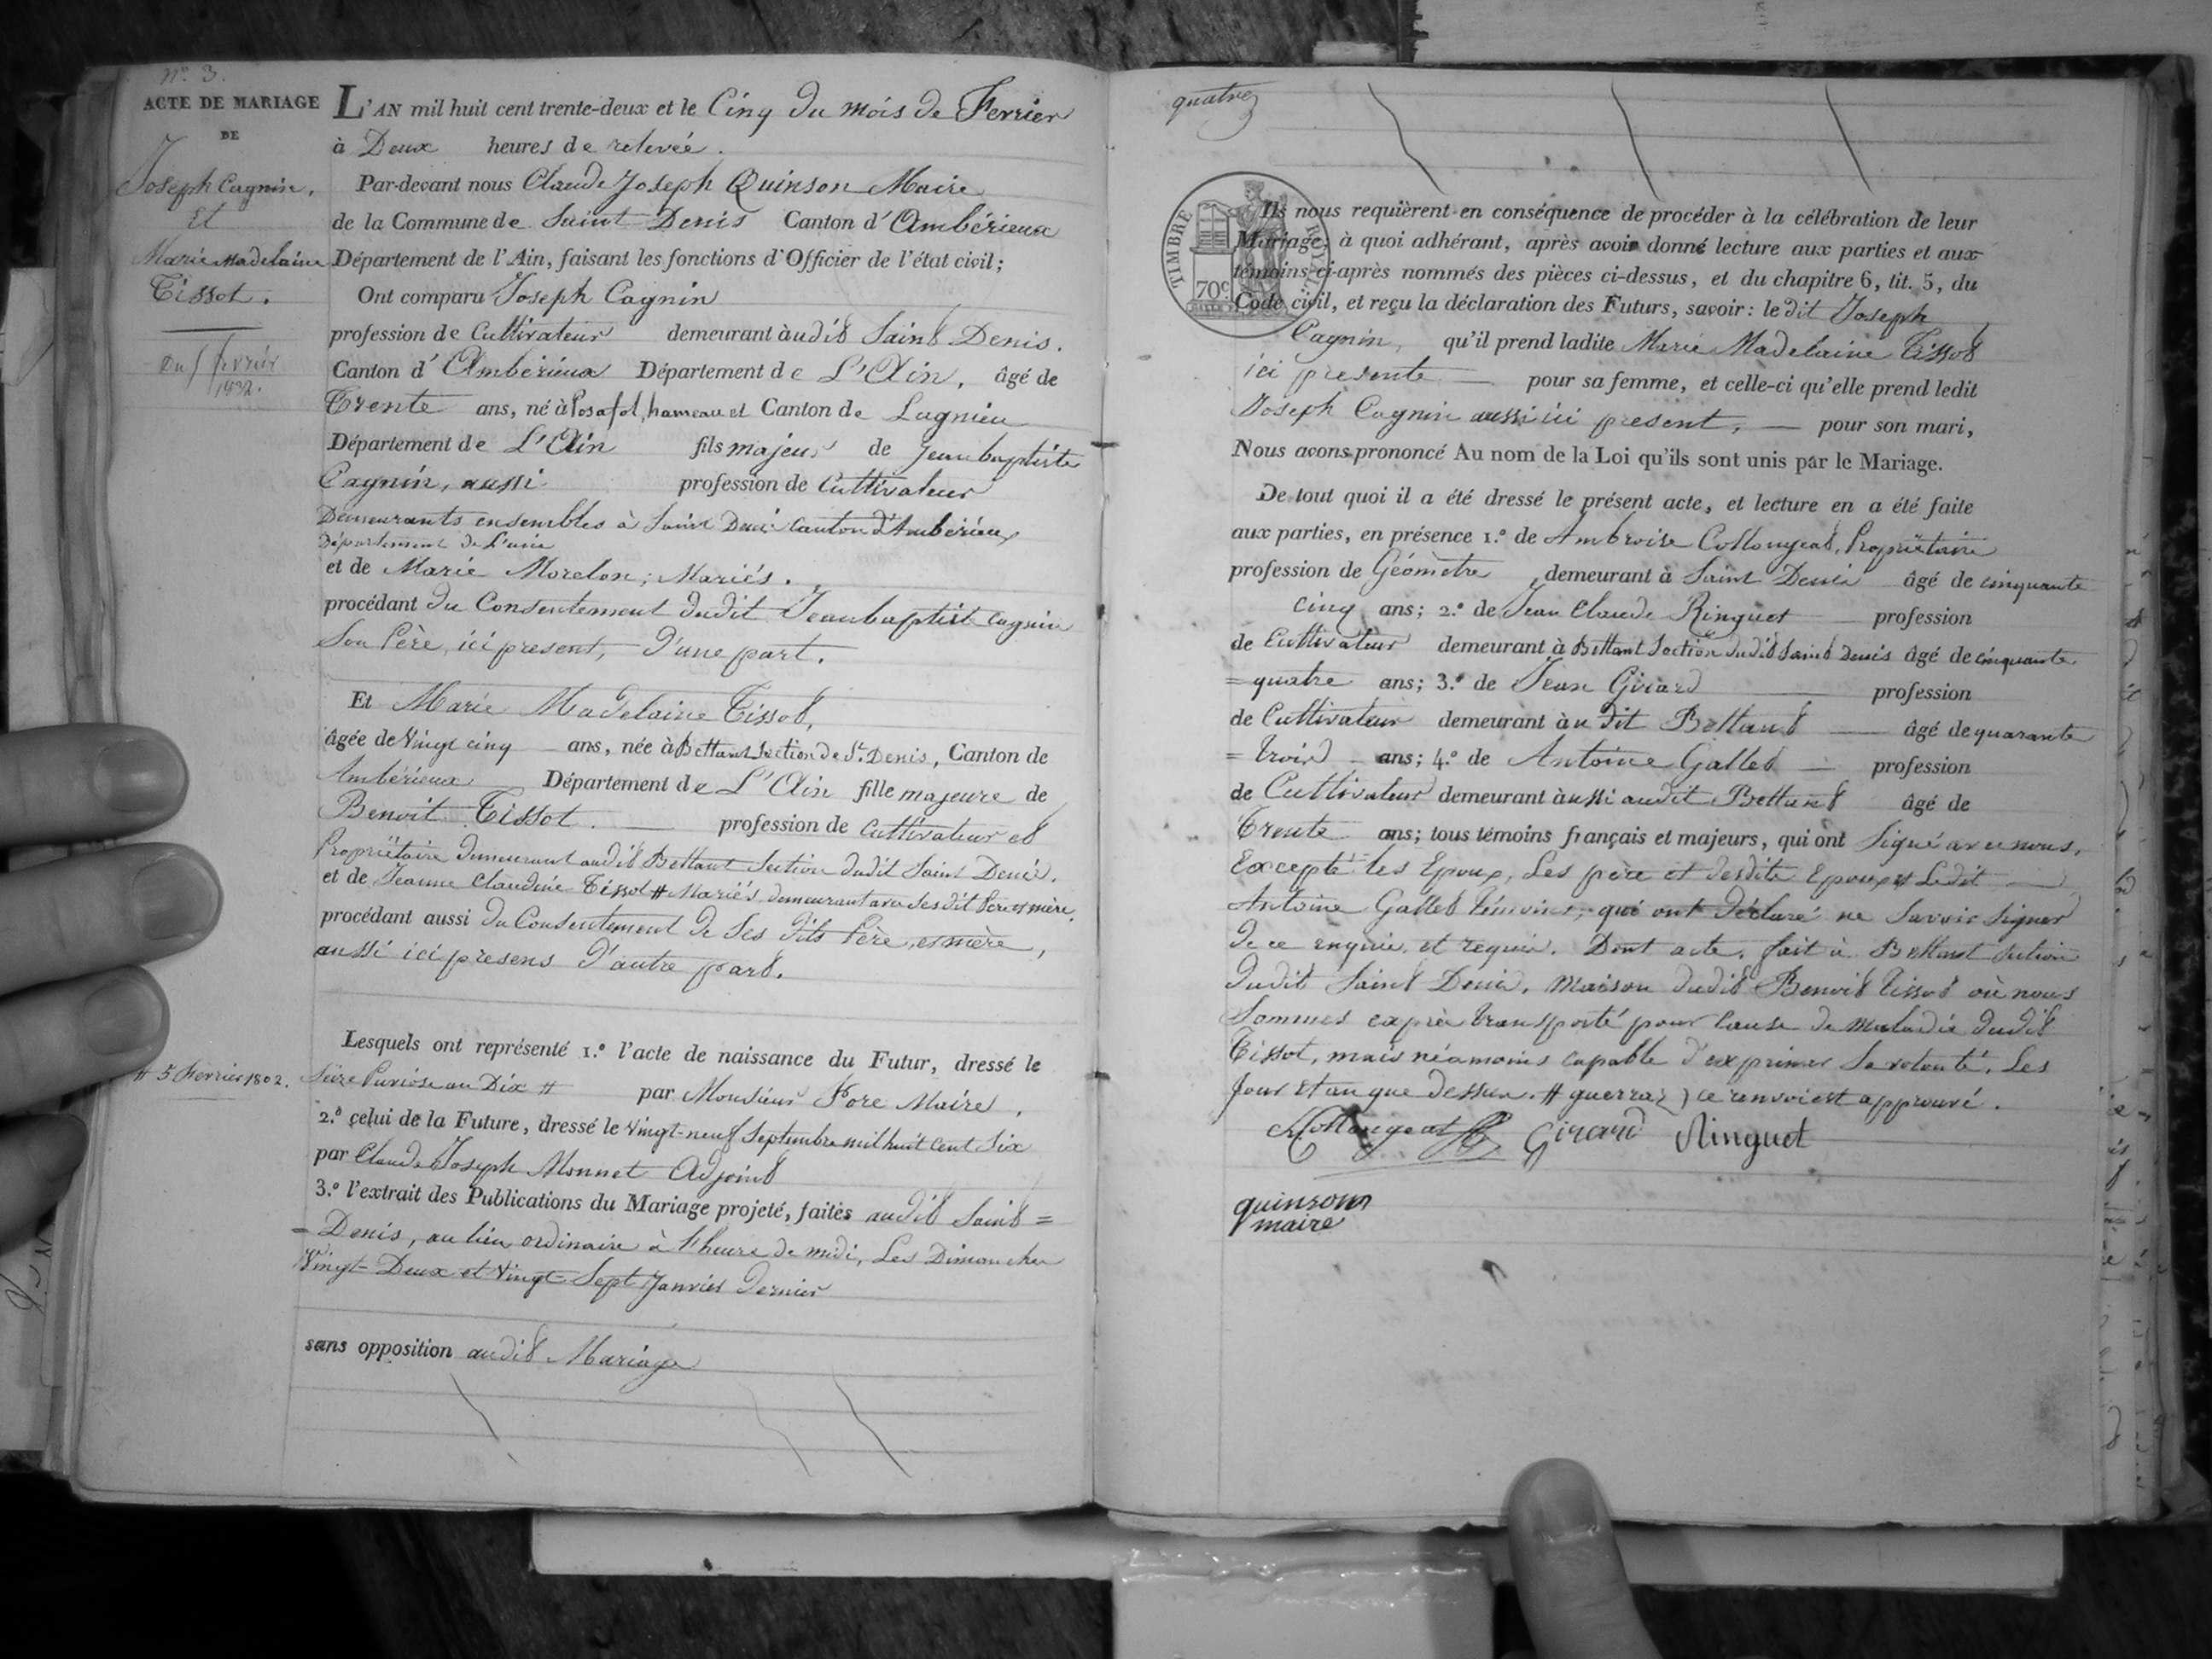 n.° 3.
ACTE DE MARIAGE
DE
Joseph Cagnin,
Et
Marie Madelaine
Tissot.
Du 5 fevrier
1832.
L'AN mil huit cent trente-deux et le Cinq du mois de Fevrier
à Deux heures de relevée.
Par-devant nous Claude Joseph Quinson Maire
de la Commune de Saint Denis Canton d'Ambérieux
Département de l'Ain, faisant les fonctions d'Officier de l'état civil;
Ont comparu Joseph Cagnin
profession de Cultivateur demeurant àudit Saint Denis.
Canton d'Ambérieux Département de L'Ain, âgé de
Trente ans, né à Posafol, hameau et Canton de Lagnieu
Département de L'Ain fils majeur de Jean baptiste
Cagnin, aussi profession de Cultivateur
Demeurants ensembles à Saint Denis Canton d'Ambérieux
Département de L'ain
et de Marie Morelon; Mariés.
procédant du Consentement dudit Jeanbaptist Cagnin
Son Père, ici present, D'une part.
Et Marie Madelaine Tissot,
âgée de Vingt cinq ans, née à Bettant Section de St. Denis, Canton de
Ambérieux Département de L'Ain fille majeure de
Benoit Tissot. profession de Cultivateur et
Propriétaire demeurant audit Bettant Section dudit Saint Denis.
et de Jeanne Claudine Tissot # Mariés demeurant avec ses dit Père et mère.
procédant aussi du Consentement de Ses dits Père, et mère,
aussi ici presens D'autre part.
Lesquels ont représenté 1.° l'acte de naissance du Futur, dressé le
# 5 Fevrier 1802.
Seize Pluviose an Dix # par Monsieur Fore Maire,
2.° celui de la Future, dressé le Vingt-neuf Septembre mil huit Cent Six
par Claude Joseph Monnet Adjoint
3.° l'extrait des Publications du Mariage projeté, faites audit Saint =
= Denis, au lieu ordinaire à l'heure de midi, Les Dimanches
Vingt-Deux et Vingt-Sept Janvier Dernier
sans opposition audit Mariage
quatre
TIMBRE ROYAL
70c
Ils nous requièrent en conséquence de procéder à la célébration de leur
Mariage; à quoi adhérant, après avoir donné lecture aux parties et aux
témoins ci-après nommés des pièces ci-dessus, et du chapitre 6, tit. 5, du
Code civil, et reçu la déclaration des Futurs, savoir: le dit Joseph
Cagnin, qu'il prend ladite Marie Madelaine Tissot
ici presente pour sa femme, et celle-ci qu'elle prend ledit
Joseph Cagnin aussi ici present, pour son mari,
Nous avons prononcé Au nom de la Loi qu'ils sont unis par le Mariage.
De tout quoi il a été dressé le présent acte, et lecture en a été faite
aux parties, en présence 1.° de Ambroise Collongeat, Propriétaire
profession de Géomètre, demeurant à Saint Denis âgé de cinquante
cinq ans; 2.° de Jean Claude Ringuet profession
de Cultivateur demeurant à Bettant Section dudit Saint Denis âgé de cinquante
= quatre ans; 3.° de Jean Girard profession
de Cultivateur demeurant àu dit Bettant âgé de quarante
= trois ans; 4.° de Antoine Gallet profession
de Cultivateur demeurant àussi audit Bettant âgé de
Trente ans; tous témoins français et majeurs, qui ont Signé avec nous,
Excepté les Epoux, Les père et desdits Epoux et Ledit
Antoine Gallet témoins; qui ont déclaré ne Savoir Signer
de ce enquis et requis. Dont acte, fait à Bettant Section
dudit Saint Denis, maison dudit Benoit Tissot où nous
Sommes exprès transporté pour Cause de maladie dudit
Tissot, mais néamoins capable d'exprimer Sa volonté, Les
Jour et an que dessus. # guerraz) ce renvoi est approuvé.
Collongeat Girard Ringuet
quinson
maire